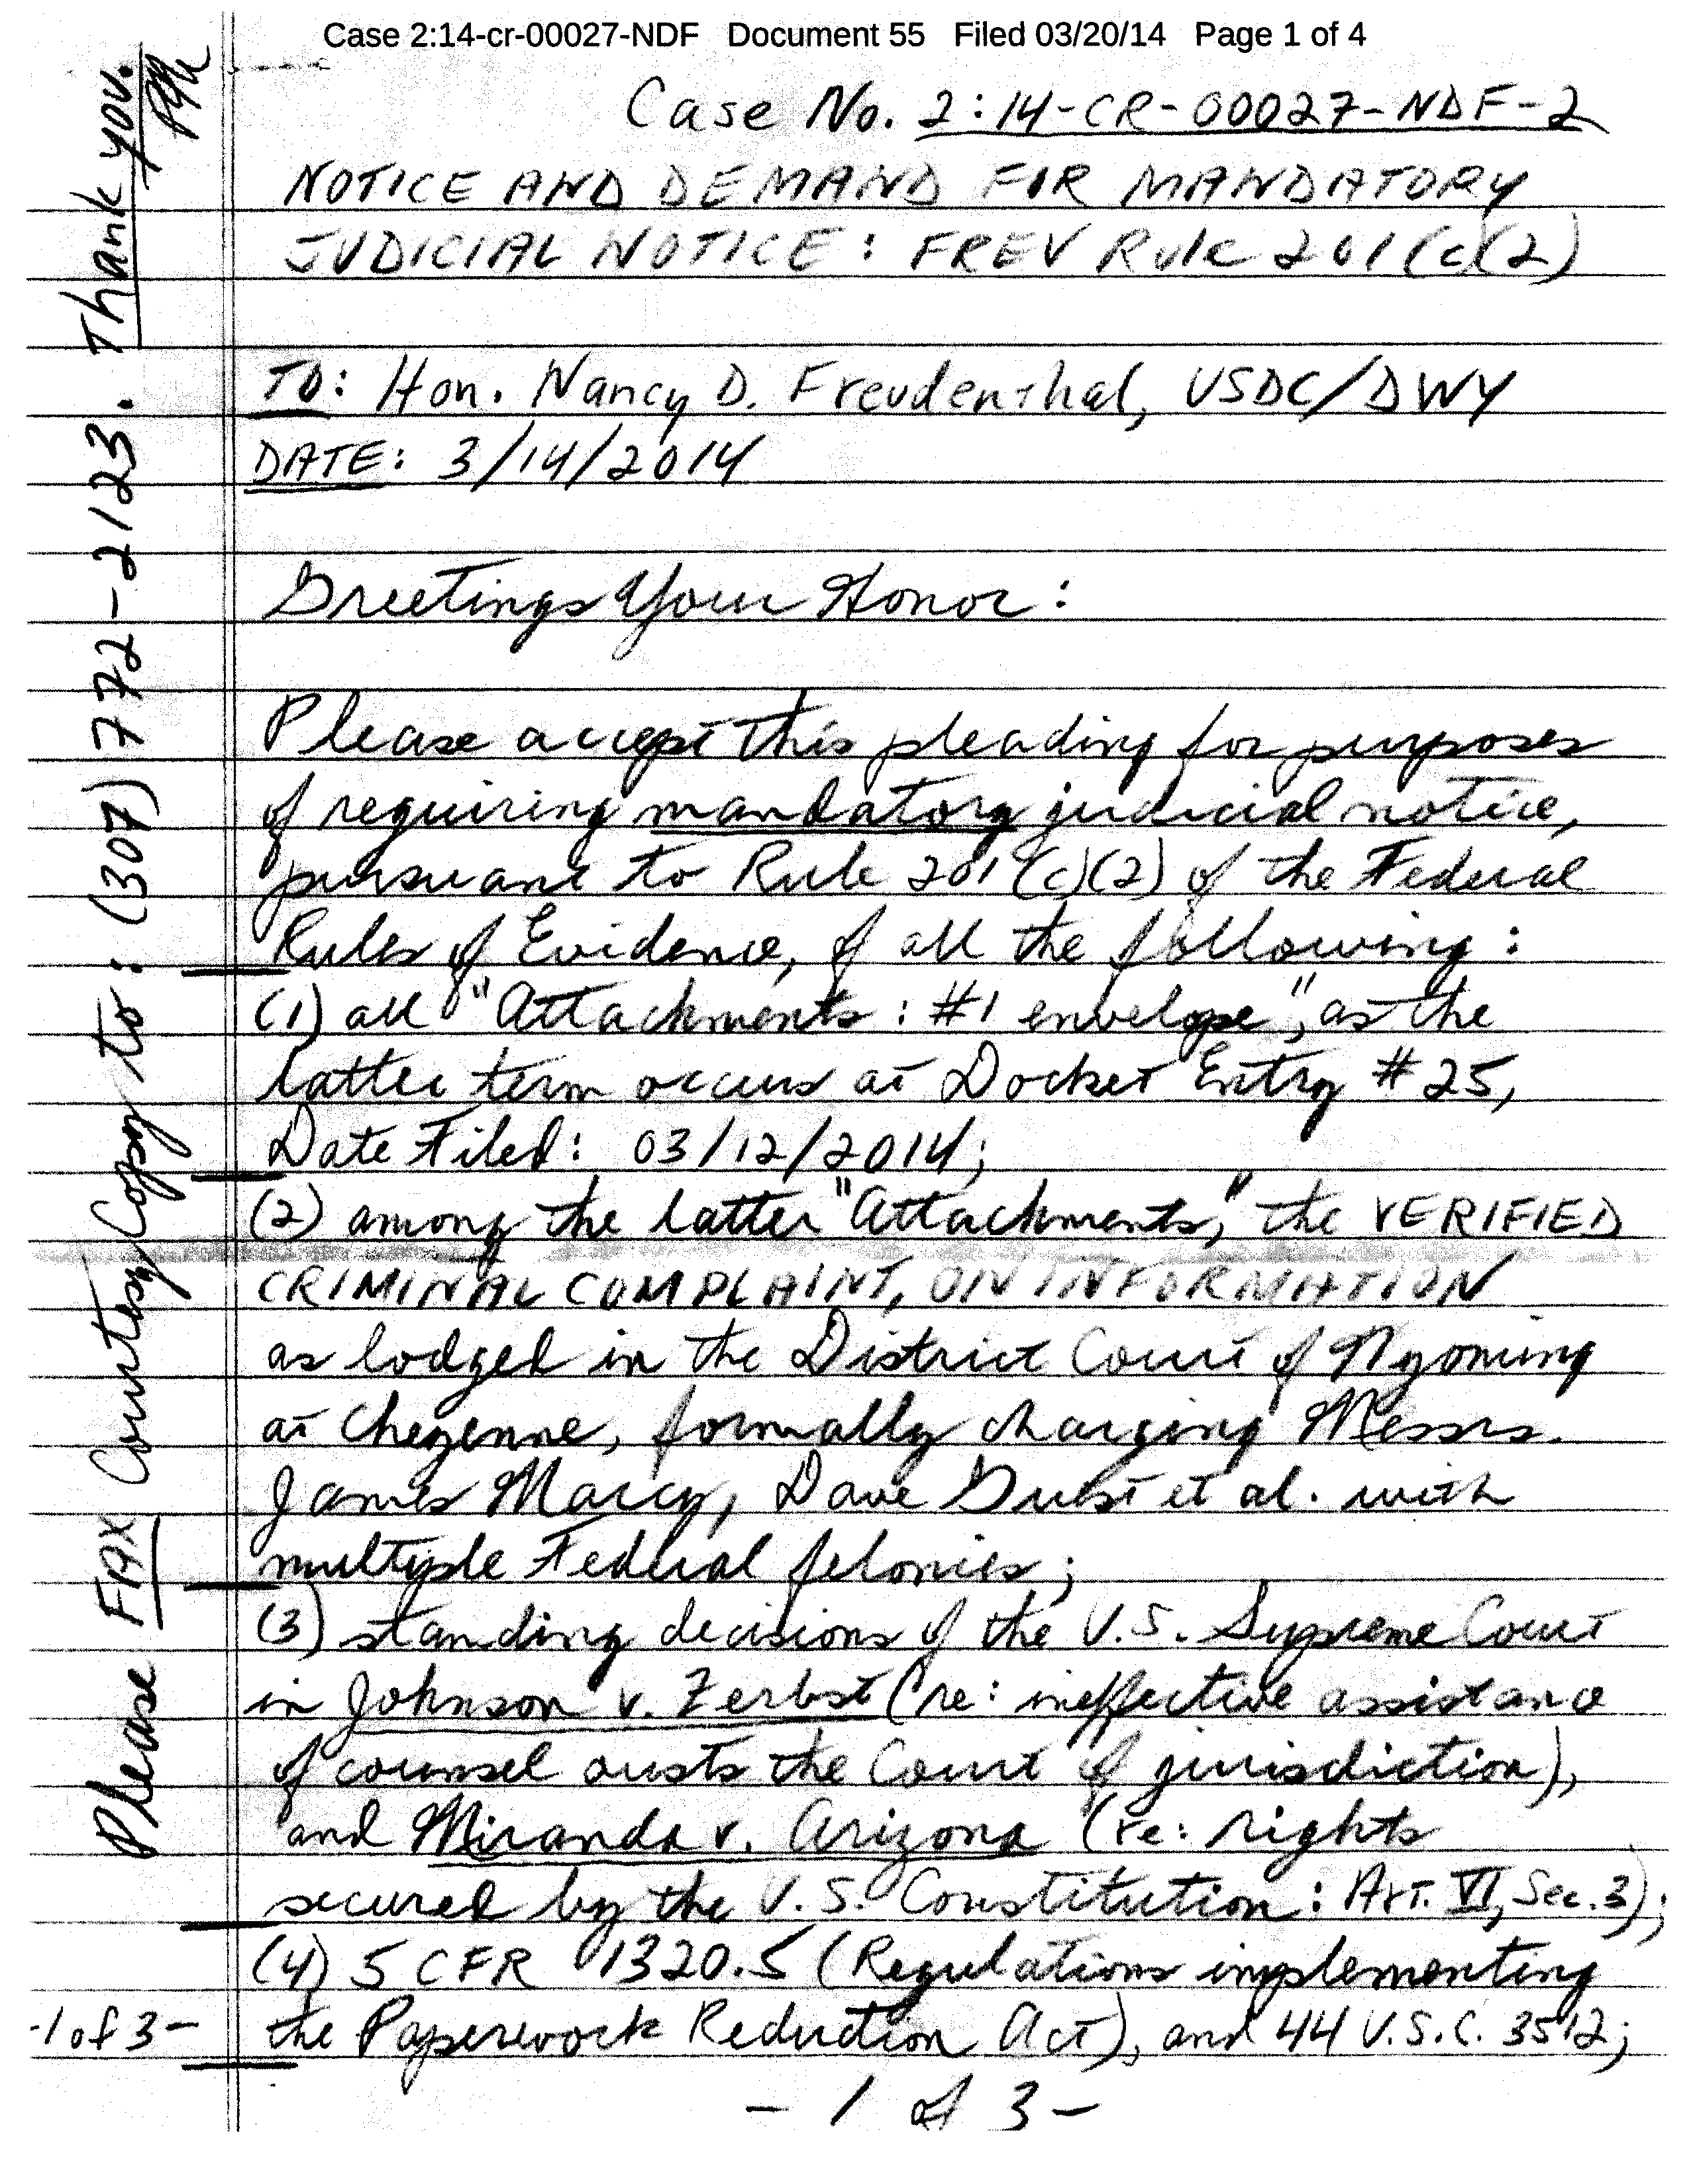 Case 2:14-cr-00027-NDF Document 55 Filed 03/20/14 Page 1 of 4
Case No. 2:14-CR-00027-NDF-2
NOTICE AND DEMAND FOR MANDATORY
JUDICIAL NOTICE: FREV Rule 201(c)(2)
TO: Hon. Nancy D. Freudenthal, USDC/DWY
DATE: 3/14/2014
Greetings Your Honor:
Please accept this pleading for purposes
of requiring mandatory judicial notice,
pursuant to Rule 201(c)(2) of the Federal
Rules of Evidence, of all the following:
(1) all "Attachments: #1 envelope", as the
latter term occurs at Docket Entry #25,
Date Filed: 03/12/2014;
(2) among the latter "Attachments," the VERIFIED
CRIMINAL COMPLAINT, ON INFORMATION
as lodged in the District Court of Wyoming
at Cheyenne, formally charging Messrs.
James Marcy, Dave Gubst et al. with
multiple Federal felonies;
(3) standing decisions of the U.S. Supreme Court
in Johnson v. Zerbst (re: ineffective assistance
of counsel ousts the Court of jurisdiction),
and Miranda v. Arizona (re: rights
secured by the U.S. Constitution: Art. VI, Sec. 3);
(4) 5 CFR 1320.5 (Regulations implementing
the Paperwork Reduction Act), and 44 U.S.C. 3512;
-1 of 3-
- 1 of 3 -
Please FAX Courtesy Copy to: (307)772-2123. Thank you.